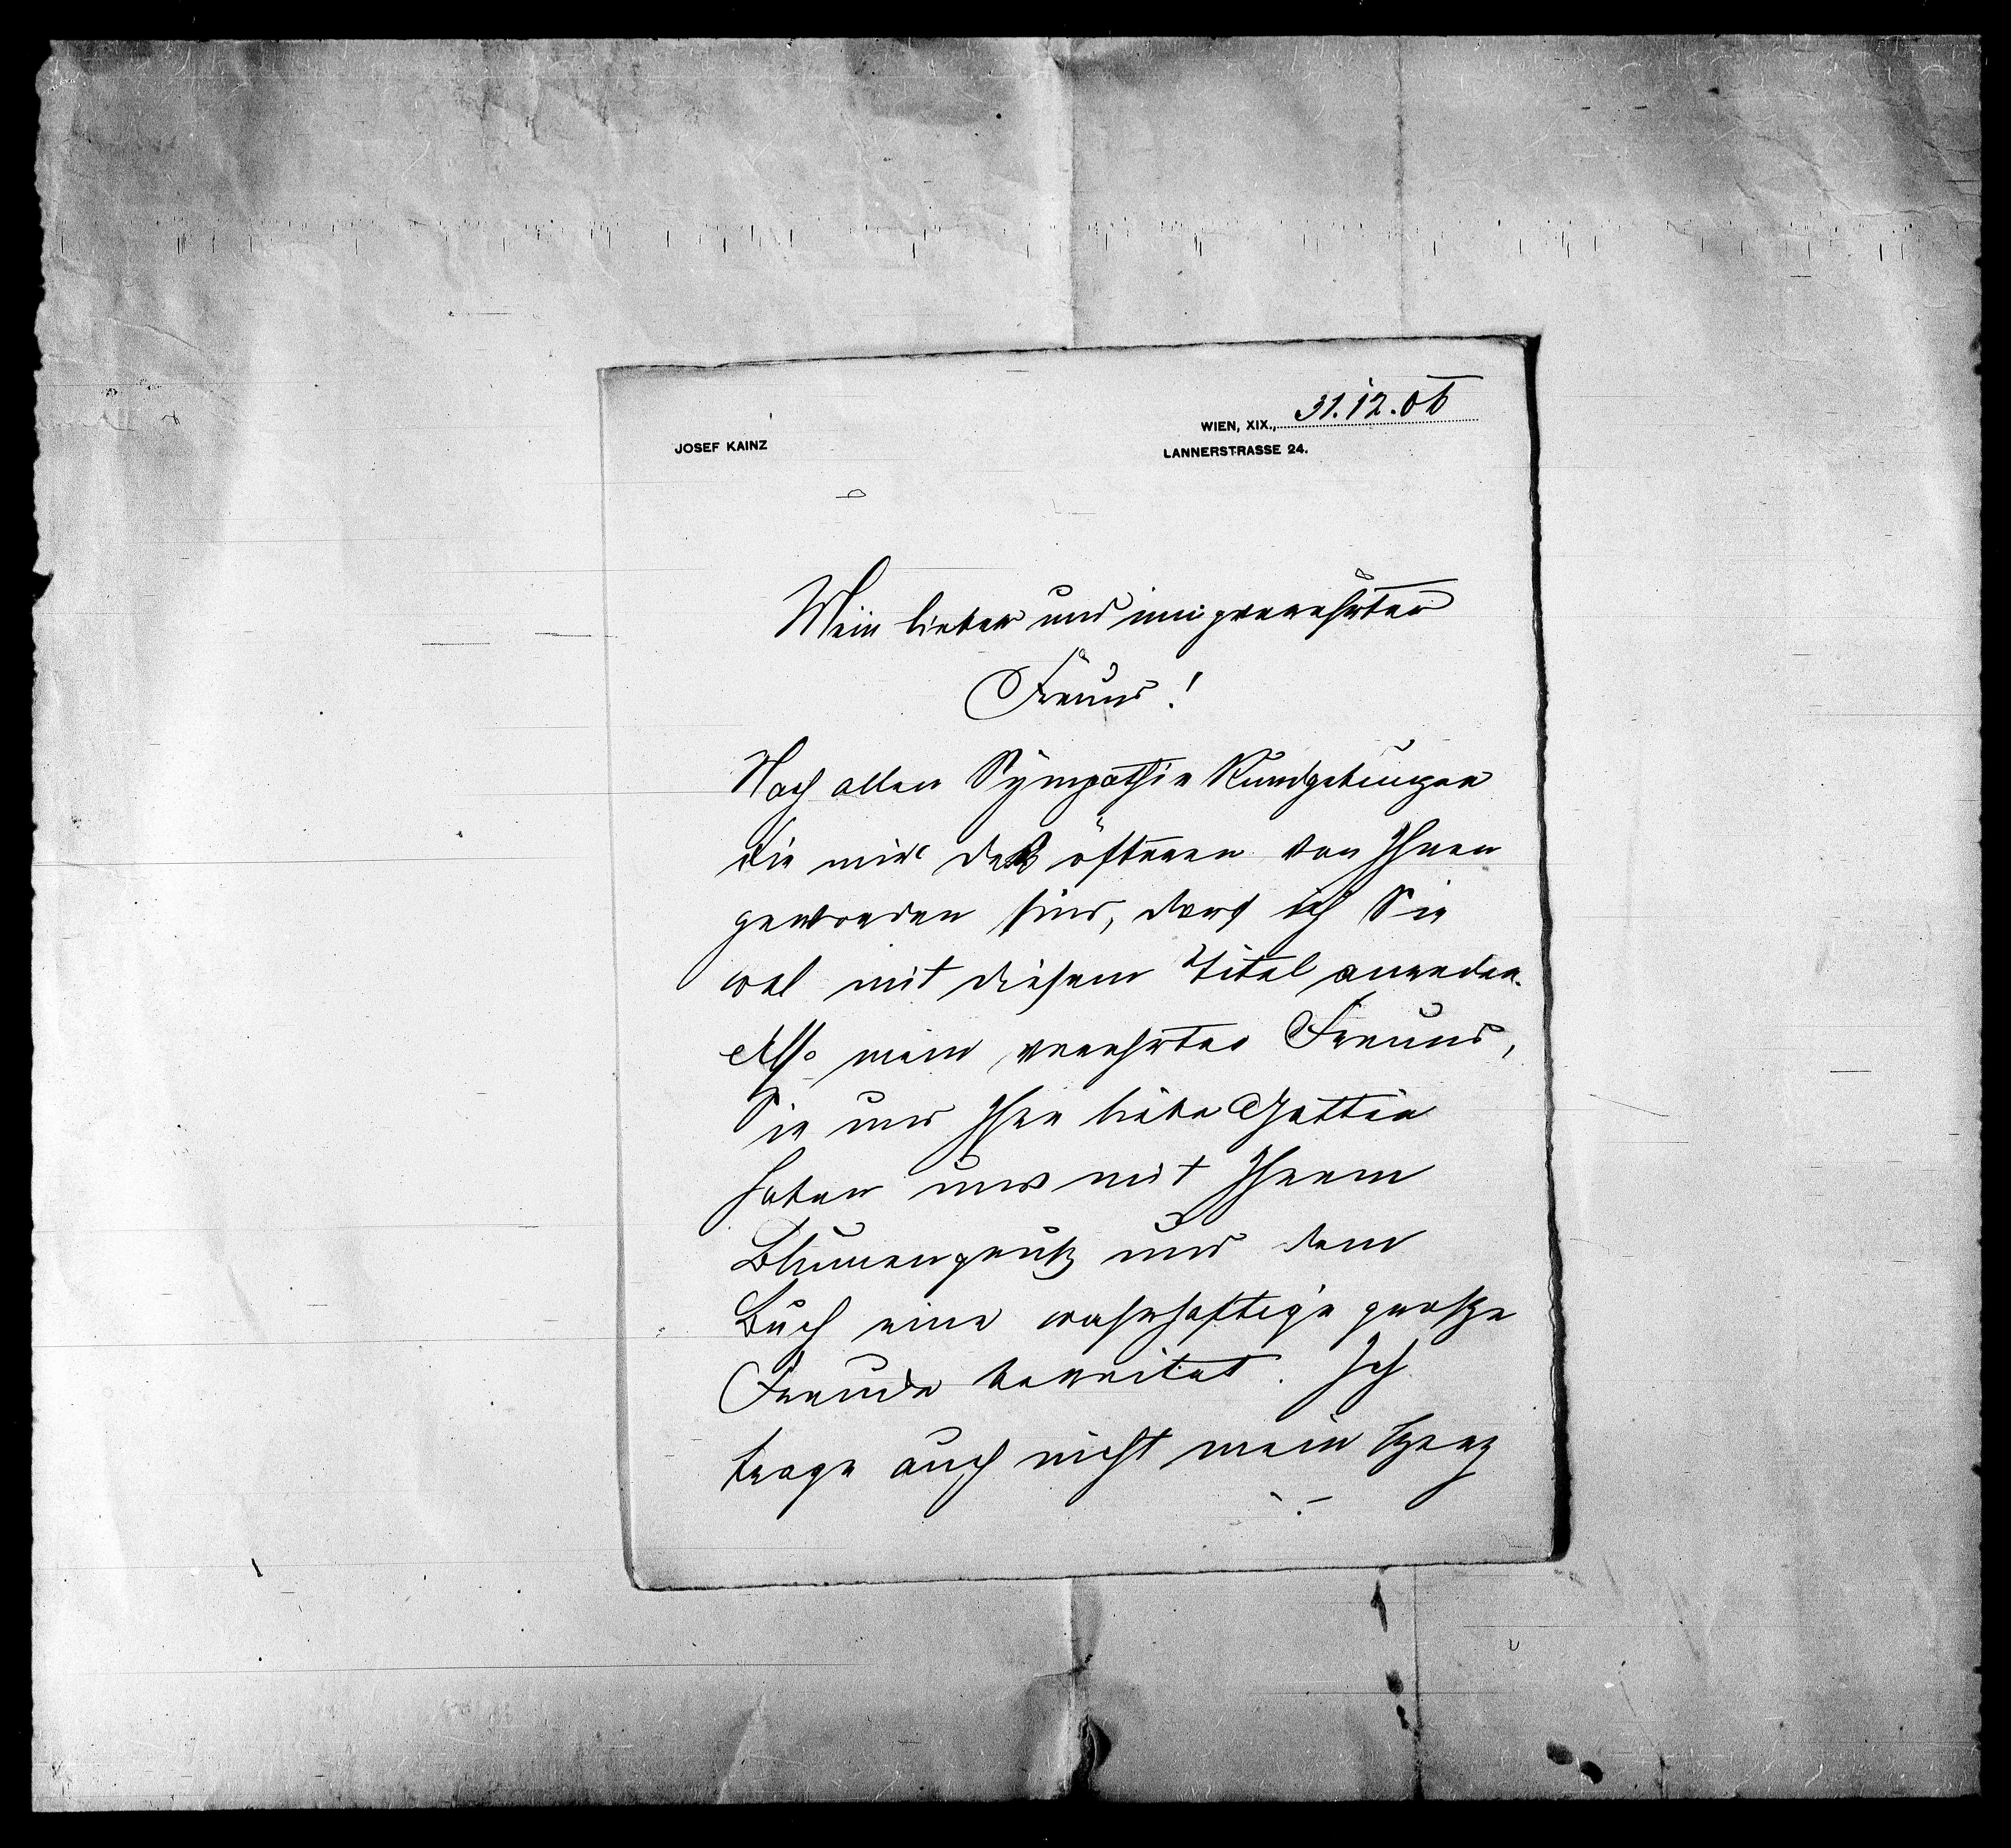 31.12.06
WIEN, XIX.,
JOSEF KAINZ
LANNERSTRASSE 24.
Mein lieber und innigverehrter
Freund!
Nach allen Sympathie Kundgebungen
die mir des öfteren von Ihnen
geworden sind, darf ich Sie
wol mit diesem Titel anreden.
Also mein verehrter Freund,
Sie und Ihre liebe Gattin
haben uns mit Ihrem
Blumengruß und dem
Buch eine wahrhaftige große
Freude bereitet. Ich
trage auch nicht mein Herz